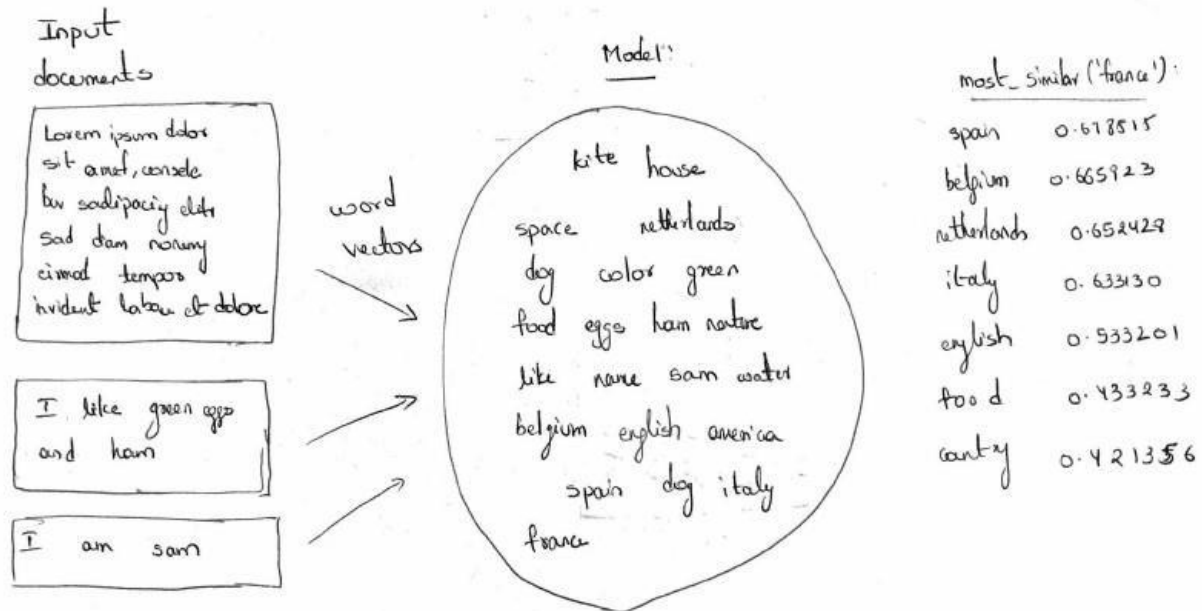 Input
documents
Lorem ipsum dolor
sit amet, consete
tur sadipscing elitr
sed diam nonumy
eirmod tempor
invidunt labore et dolore
I like green eggs
and ham
I am sam
word
vectors
Model:
kite house
space netherlands
dog color green
food eggs ham nature
like name sam water
belgium english america
spain dog italy
france
most_similar('france'):
spain 0.678515
belgium 0.665923
netherlands 0.652428
italy 0.633130
english 0.533201
food 0.433233
country 0.421356